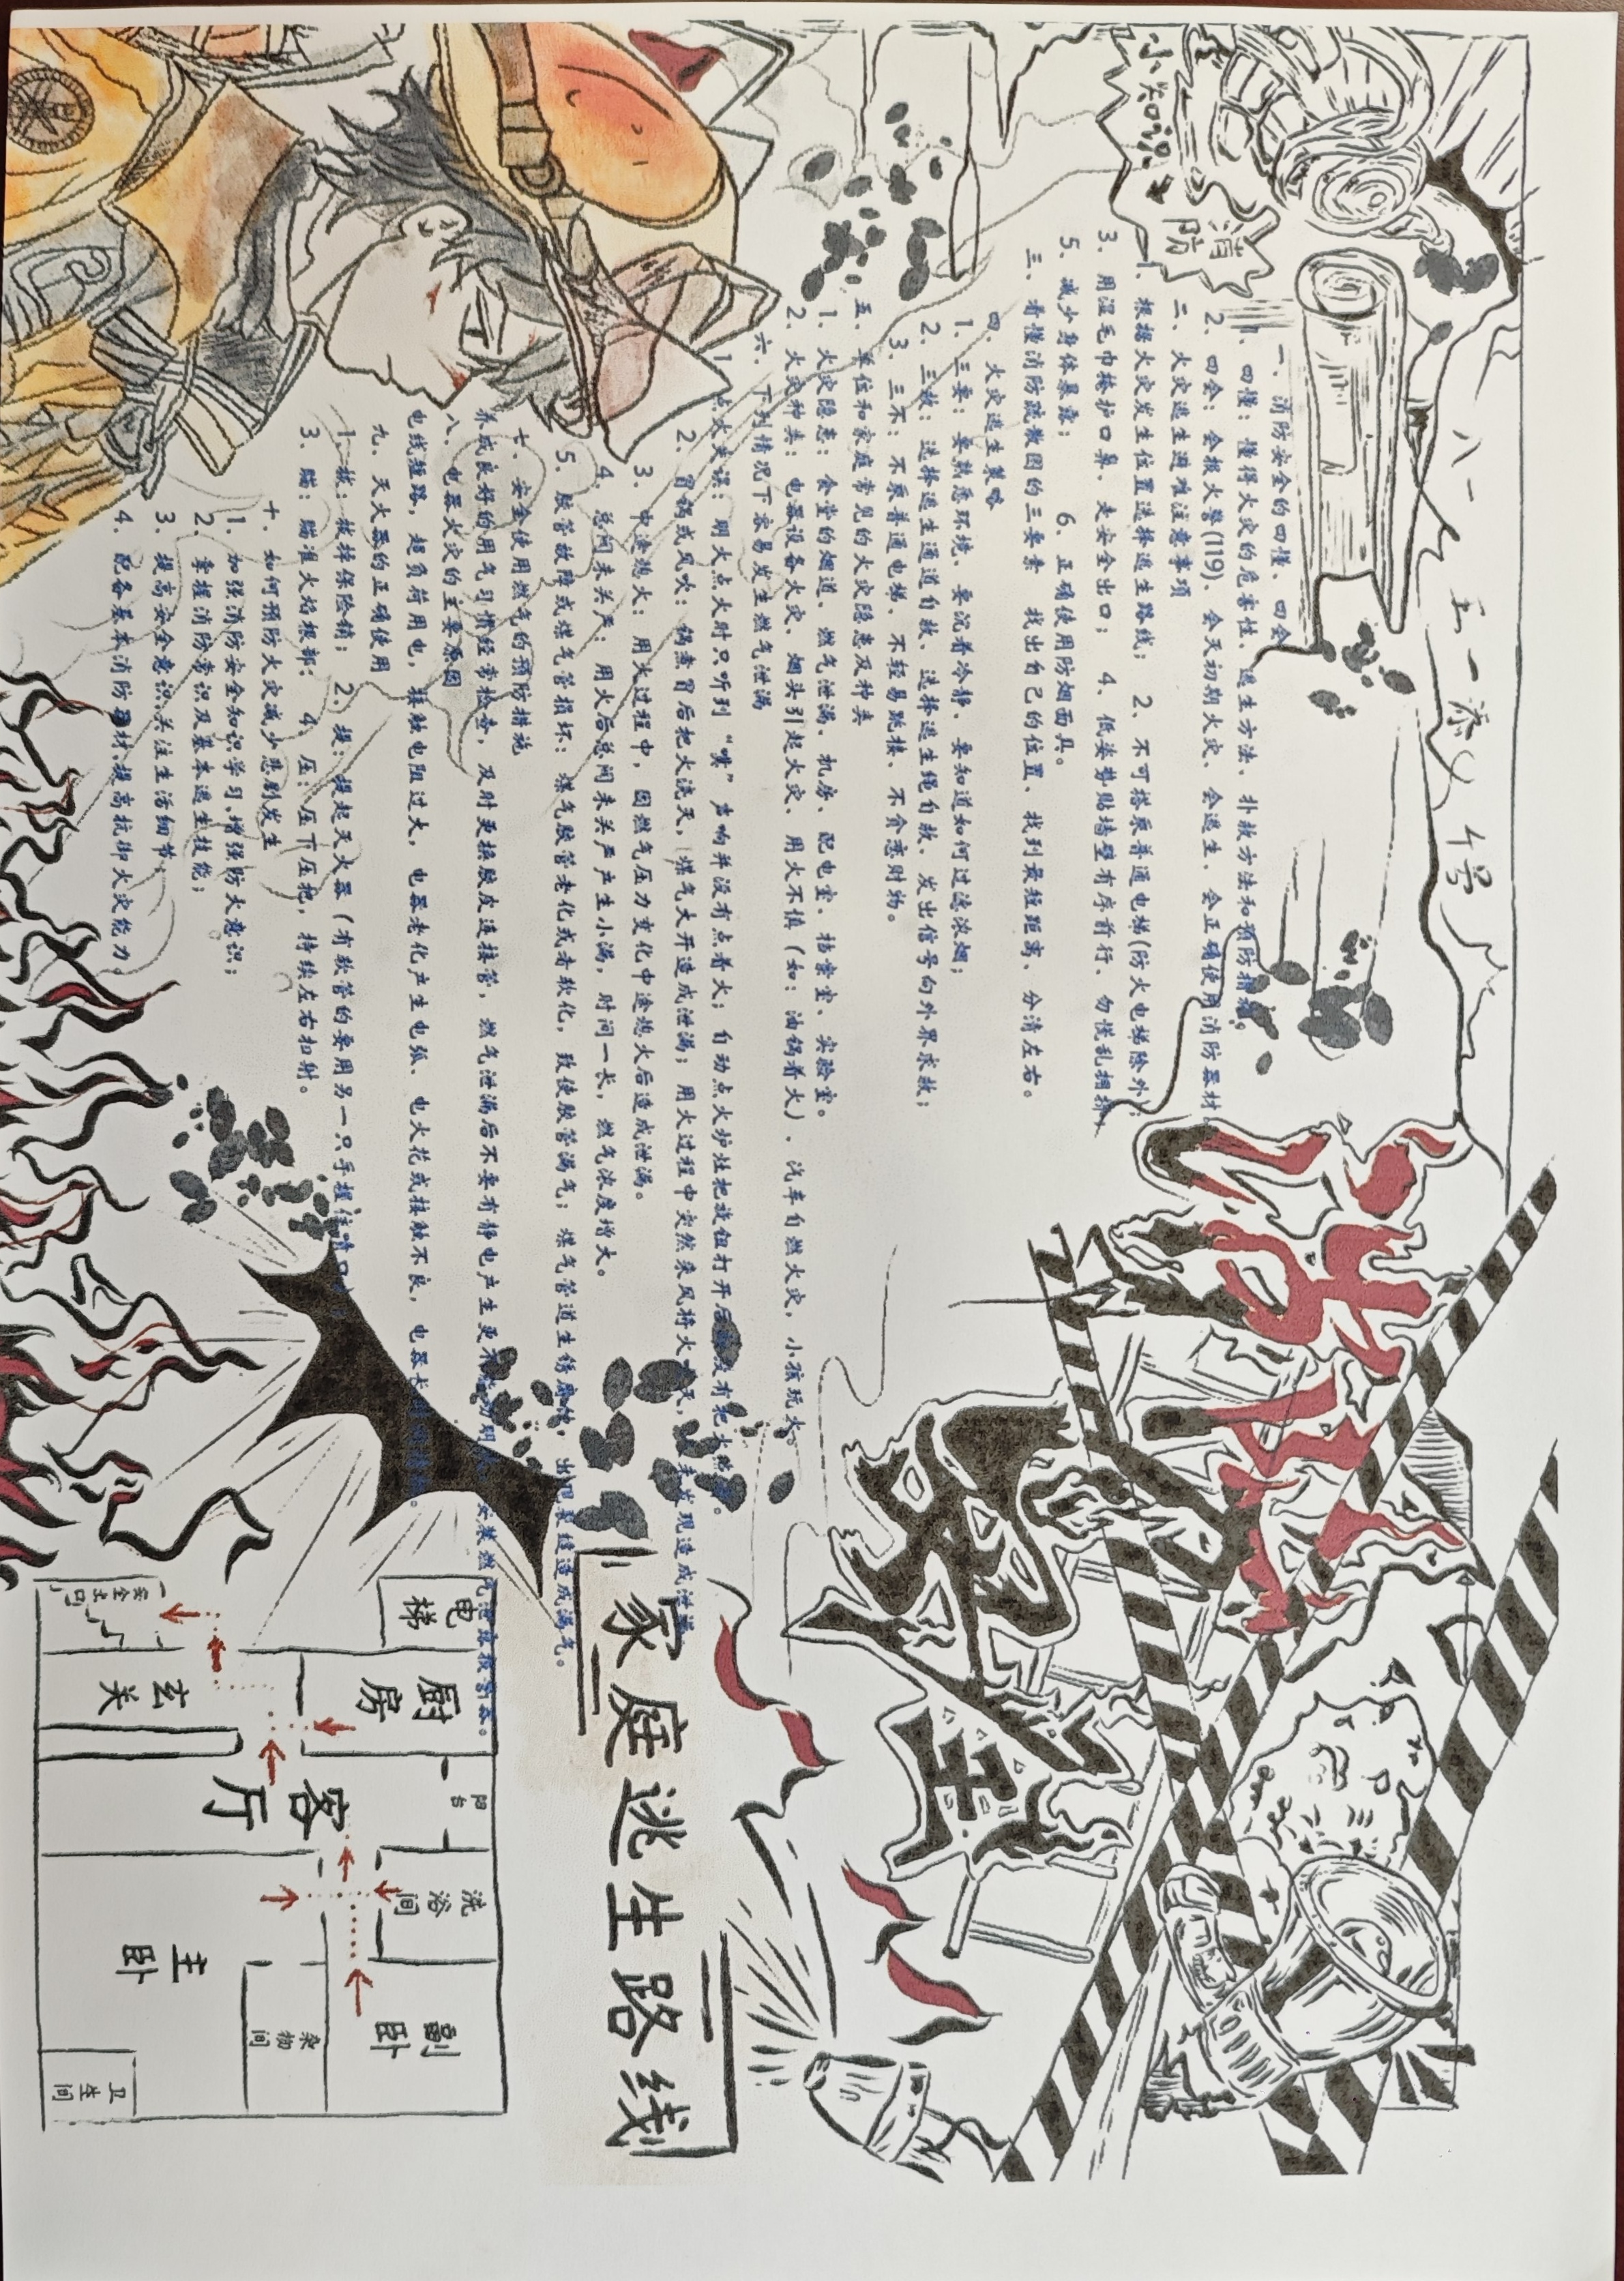 八一
王一添
4号
小知识
消防
火灾
一、消防安全的四懂、四会
1、四懂：懂得火灾的危害性、逃生方法、扑救方法和预防措施。
2、四会：会报火警(119)、会灭初期火灾、会逃生、会正确使用消防器材；
二、火灾逃生避难注意事项
1、根据火灾发生位置选择逃生路线； 2、不可搭乘普通电梯(防火电梯除外)；
3、用湿毛巾捂护口鼻、走安全出口； 4、低姿势贴墙壁有序前行、勿慌乱拥挤；
5、减少身体暴露； 6、正确使用防烟面具。
三、看懂消防疏散图的三要素 找出自己的位置、找到最短距离、分清左右。
四、火灾逃生策略
1、三要：要熟悉环境、要沉着冷静、要知道如何过滤浓烟；
2、三救：选择逃生通道自救、选择逃生绳自救、发出信号向外界求救；
3、三不：不乘普通电梯、不轻易跳楼、不介恋财物。
五、单位和家庭常见的火灾隐患及种类
1、火灾隐患：食堂的烟道、燃气泄漏、机房、配电室、档案室、实验室。
2、火灾种类：电器设备火灾、烟头引起火灾、用火不慎（如：油锅着火）、汽车自燃火灾，小孩玩火。
六、下列情况下容易发生燃气泄漏
1、点火失误：明火点火时只听到“噗”声响并没有点着火；自动点火炉灶把旋钮打开后并没有把火点着。
2、冒锅或风吹：锅煮冒后把火浇灭，煤气大开造成泄漏；用火过程中突然来风将火吹灭，未发现造成泄漏。
3、中途熄火：用火过程中，因燃气压力变化中途熄火后造成泄漏。
4、总阀未关严：用火后总阀未关严产生小漏，时间一长，燃气浓度增大。
5、胶管故障或煤气管损坏：煤气胶管老化或者软化，致使胶管漏气；煤气管道生锈腐蚀，出现裂缝造成漏气。
七、安全使用燃气的预防措施
养成良好的用气习惯经常检查，及时更换胶皮连接管，燃气泄漏后不要有静电产生更不能动明火，安装燃气泄漏报警器。
八、电器火灾的主要原因
电线短路，超负荷用电，接触电阻过大，电器老化产生电弧、电火花或接触不良，电器长
九、灭火器的正确使用
1、拔：拔掉保险销； 2、提：提起灭火器（有软管的要用另一只手握住喷口
3、瞄：瞄准火焰根部； 4、压：压下压把，持续左右扫射。
十、如何预防火灾减少悲剧发生
1、加强消防安全知识学习、增强防火意识；
2、掌握消防常识及基本逃生技能；
3、提高安全意识、关注生活细节；
4、配备基本消防器材、提高抗御火灾能力。
家庭逃生路线
电梯
厨房
阳台
洗浴间
副卧
杂物间
安全出口
玄关
客厅
主卧
卫生间